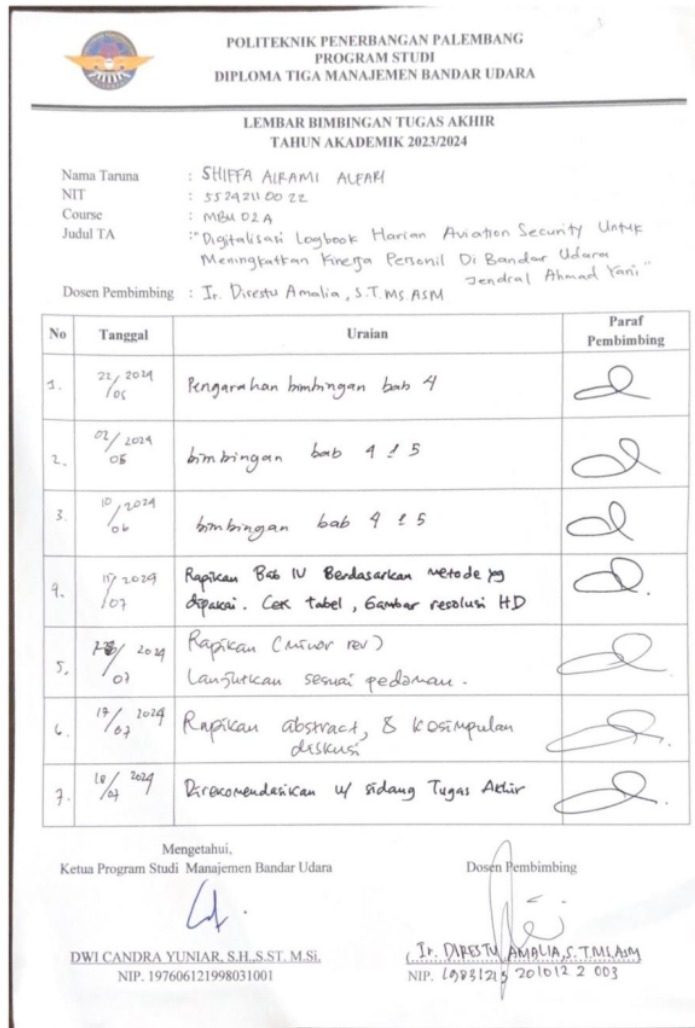 POLITEKNIK PENERBANGAN PALEMBANG
PROGRAM STUDI
DIPLOMA TIGA MANAJEMEN BANDAR UDARA
LEMBAR BIMBINGAN TUGAS AKHIR
TAHUN AKADEMIK 2023/2024
Nama Taruna : SHIFFA AIRAMI ALFARI
NIT : 55242110022
Course : MBU 02A
Judul TA : "Digitalisasi Logbook Harian Aviation Security Untuk
Meningkatkan Kinerja Personil Di Bandar Udara
Jendral Ahmad Yani"
Dosen Pembimbing : Ir. Direstu Amalia, S.T. MS. ASM
No Tanggal Uraian Paraf
Pembimbing
1. 22/05 2024 Pengarahan bimbingan bab 4
2. 02/ 2024 bimbingan bab 4 & 5
3. 10/06 2024 bimbingan bab 4 & 5
4. 15/07 2024 Rapikan Bab IV Berdasarkan metode yg
dipakai. Cek tabel, Gambar resolusi HD
5. /07 2024 Rapikan (minor rev)
Lanjutkan sesuai pedoman.
6. 17/07 2024 Rapikan abstract, & kesimpulan
diskusi
7. 18/07 2024 Direkomendasikan u/ sidang Tugas Akhir
Mengetahui,
Ketua Program Studi Manajemen Bandar Udara
Dosen Pembimbing
DWI CANDRA YUNIAR, S.H.,S.ST. M.Si.
NIP. 197606121998031001
Ir. DIRESTU AMALIA, S.T. MS. ASM
NIP. 19831213 201012 2 003